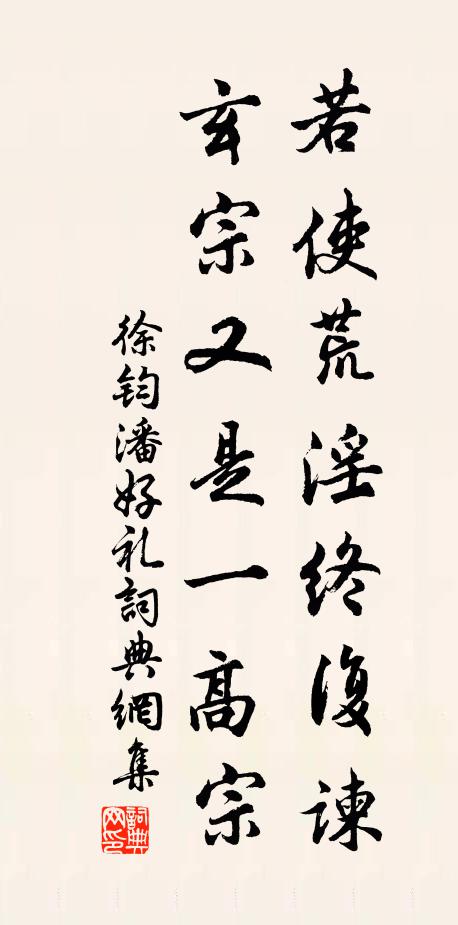 若使荒淫终復諫
玄宗又是一高宗
徐钧潘好礼詞典網集
詞典网印